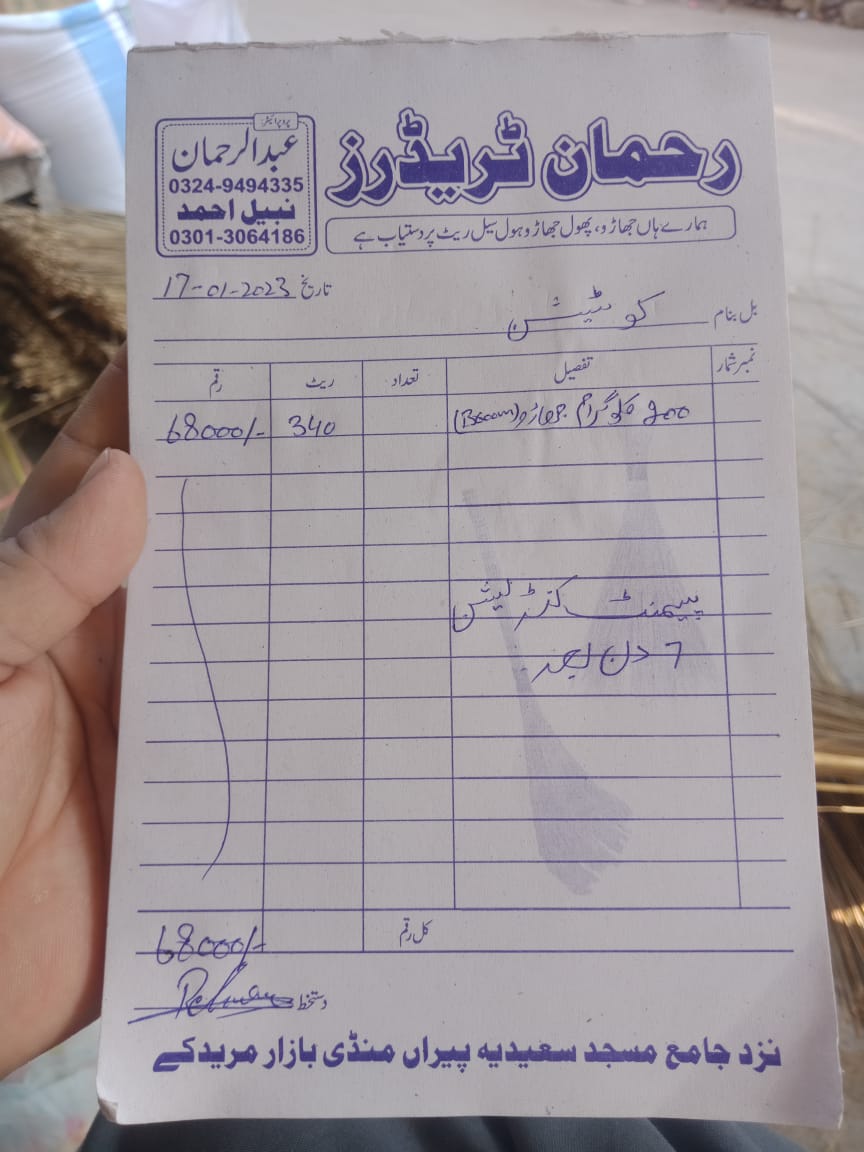 رحمان ٹریڈرز
ہمارے ہاں جھاڑو، پھول جھاڑو ہول سیل ریٹ پر دستیاب ہے
پروپرائیٹر:
عبدالرحمان
0324-9494335
نبیل احمد
0301-3064186
تاریخ 17-01-2023
بل بنام کوٹیشن
نمبر شمار تفصیل تعداد ریٹ رقم
200 کلو گرام جھاڑو (Broom) 340 68000/-
پیمنٹ کنڈیشن
7 دن بعد
کل رقم 68000/-
دستخط Rehman
نزد جامع مسجد سعیدیہ پیراں منڈی بازار مریدکے